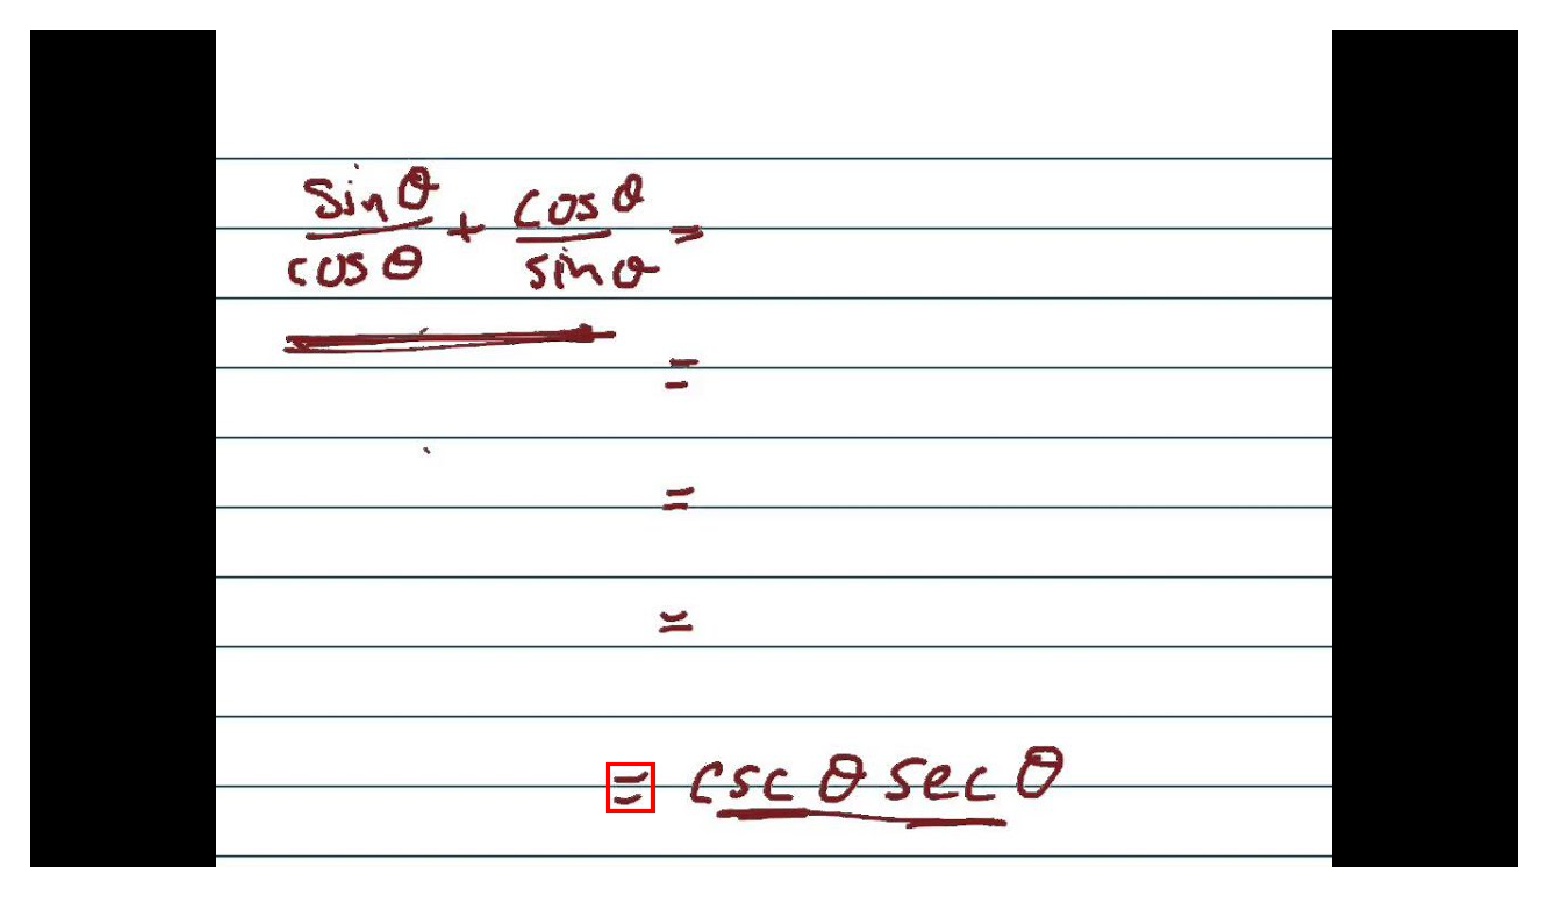 sinθ/cosθ + cosθ/sinθ =
=
=
=
= cscθ secθ